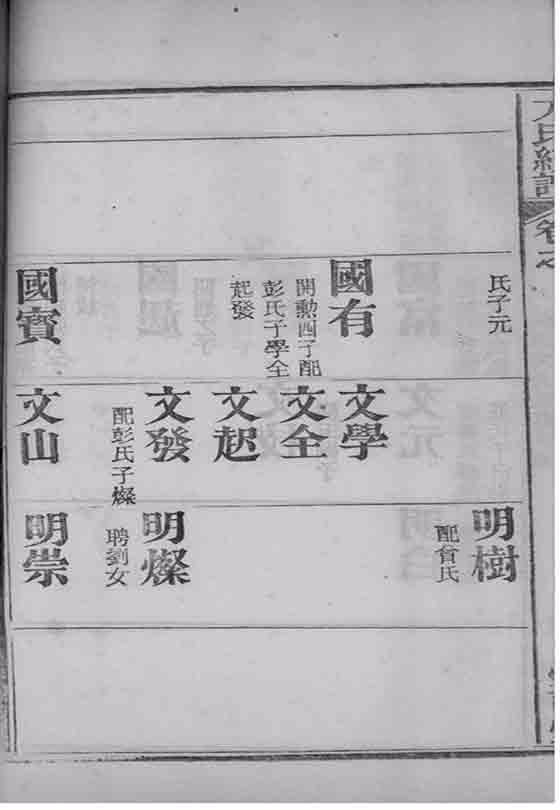 氏子元
國有
開勲四子配
彭氏子學全
起發
國寳
文學
文全
文起
文發
配彭氏子燦
文山
明樹
配曾氏
明燦
聘劉女
明崇